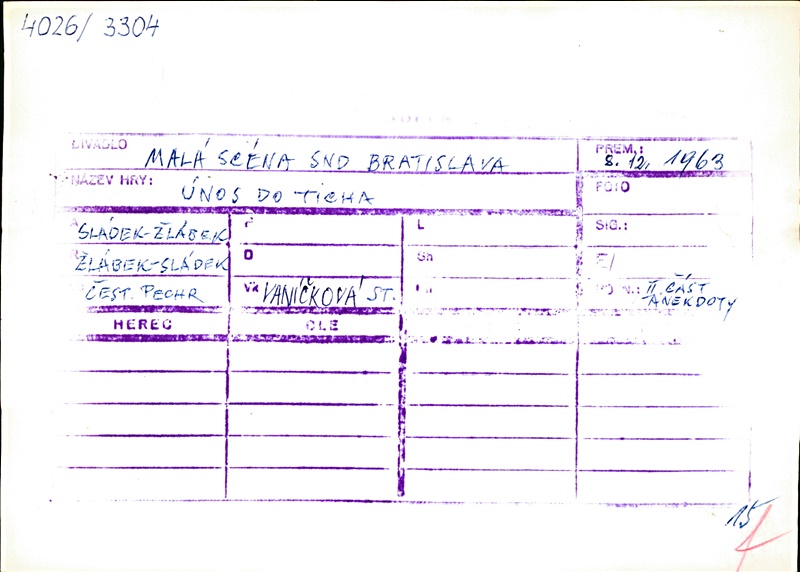 4026/ 3304
DIVADLO MALÁ SCÉNA SND BRATISLAVA PREM.: 8. 12. 1963
NÁZEV HRY: ÚNOS DO TICHA FOTO
SLÁDEK-ŽLÁBEK L SIG.:
ŽLÁBEK-SLÁDEK O Sh E/
ČEST. PECHR VK VANÍČKOVÁ ST. II. ČÁST
ANEKDOTY
HEREC OLE
15